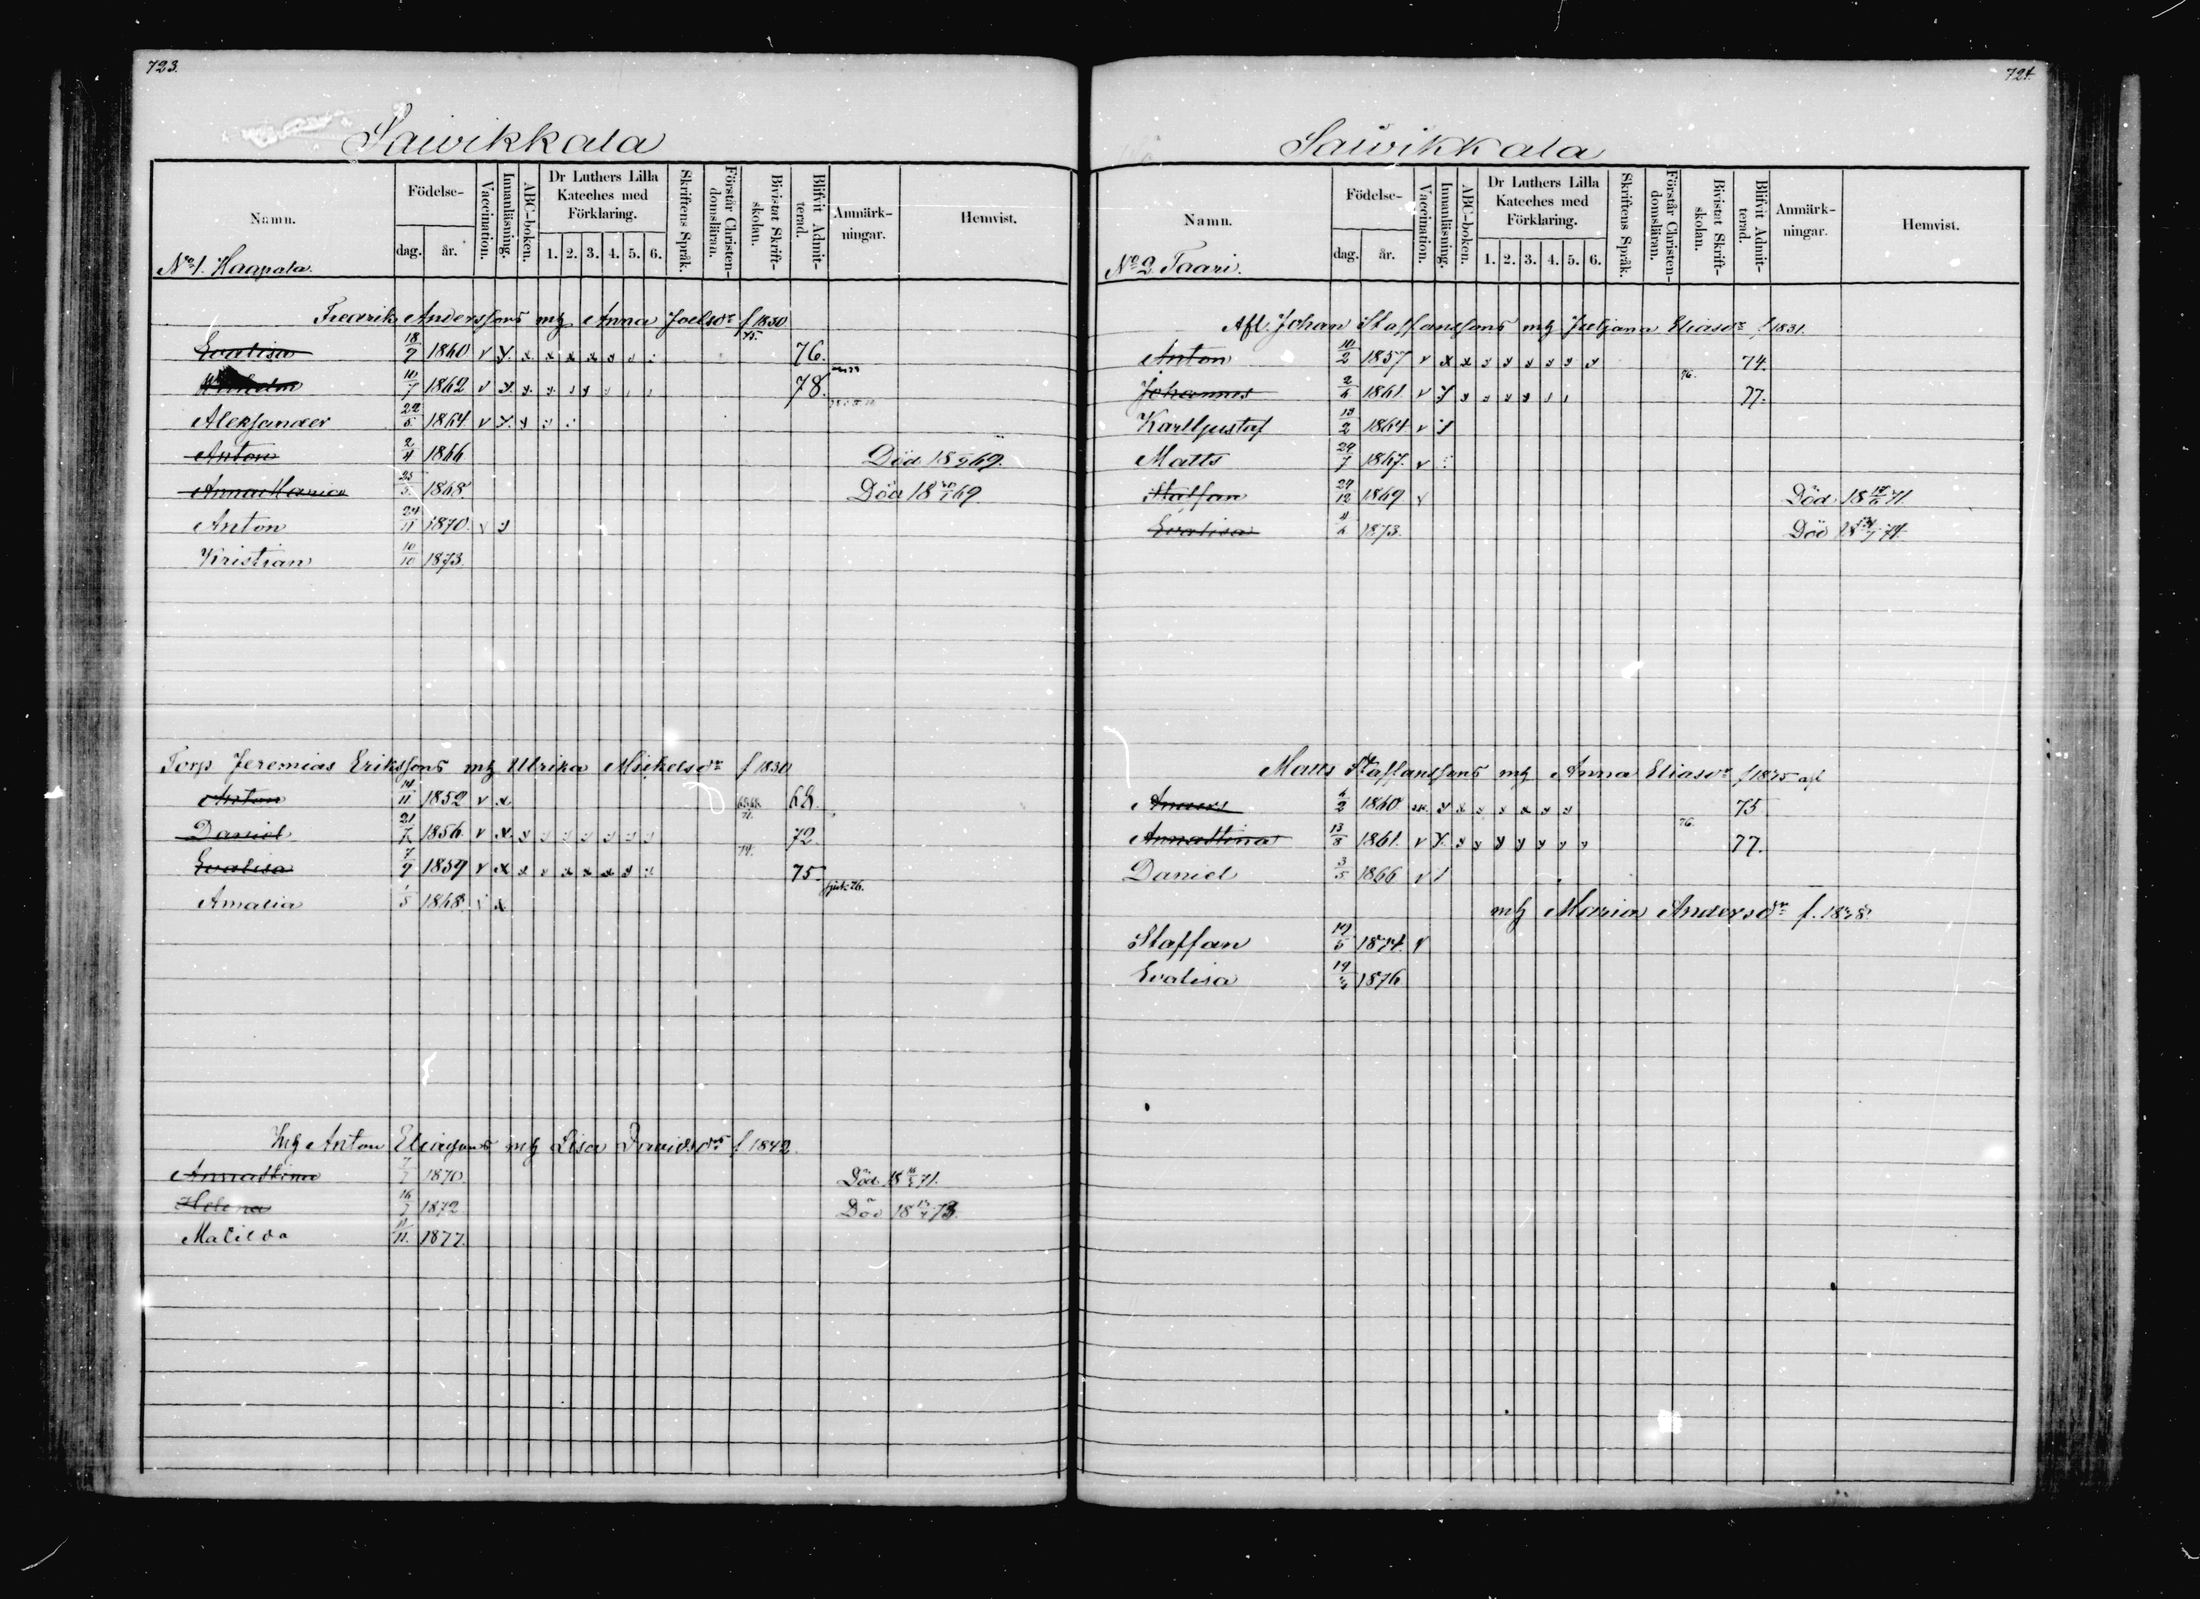 723.
Saivikkala
Namn.
Födelse-
dag.
år.
Vaccination.
Innanläsning.
ABC-boken.
Dr Luthers Lilla Kateches med Förklaring.
1. 2. 3. 4. 5. 6.
Skriftens Språk.
Förstår Christendomsläran.
Bivistat Skriftskolan.
Blifvit Admitterad.
Anmärkningar.
Hemvist.
No 1. Haapala.
Fredrik Anderssons mh Anna Joelsdr f 1830
Evalisa 18/9 1860 v 75. 76.
10/7 1862 v 78.
Aleksander 22/5 1864 v
Anton 2/4 1866 Död 18 69.
Anna Maria 25/5 1868. Död 18 69
Anton 24/11 1870. v
Kristian 10/10 1873.
Torp Jeremias Erikssons mh Ulrika Mickelsdr f 1830
Anton 14/11 1852 v x 68.
Daniel 21/7 1856. v x 72.
Evalisa 7/9 1859 v x 74. 75.
Amalia 1/5 1868. x
Anton Eliassons mh Lisa Davidsdr f 1842.
Annastina 1870 Död 18 71.
Helena 16/7 1872 Död 18 73.
Matilda 11/11. 1877.
724.
Saivikkala
Namn.
Födelse-
dag.
år.
Vaccination.
Innanläsning.
ABC-boken.
Dr Luthers Lilla Kateches med Förklaring.
1. 2. 3. 4. 5. 6.
Skriftens Språk.
Förstår Christendomsläran.
Bivistat Skriftskolan.
Blifvit Admitterad.
Anmärkningar.
Hemvist.
No 2 Taari.
Afl. Johan Staffanssons mh Juljana Eliasdr f 1831.
Anton 10/2 1857 v 74.
Johannes 2/6 1861. v 76. 77.
Karl Gustaf 13/2 1864 v
Matts 29/7 1867. v
Staffan 29/12 1869. v Död 18 71
Evalisa 1873. Död 18 74.
Matts Staffanssons mh Anna Eliasdr f 1835 afl
Anders 6/2 1860 75
Annastina 13/8 1861. v 76. 77.
Daniel 3/5 1866 v
mh Maria Andersdr f. 1838.
Staffan 19/5 1874. v
Evalisa 1876.